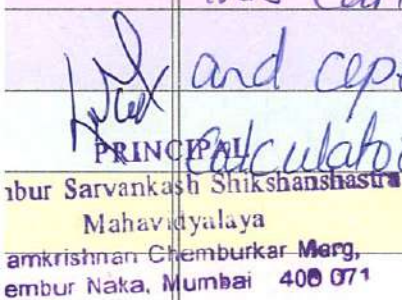 and cep
PRINCIPAL Calculato
mbur Sarvankash Shikshanshastra
Mahavidyalaya
amkrishnan Chemburkar Marg,
embur Naka, Mumbai 400 071